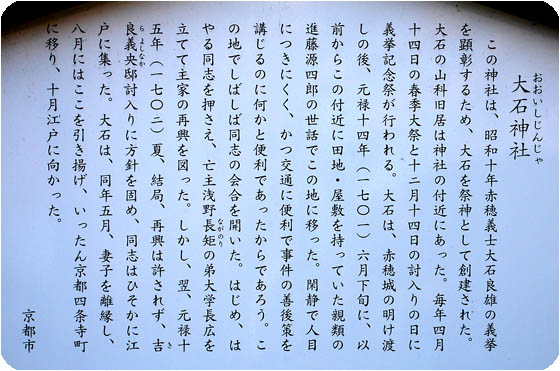 おおいしじんじゃ
大石神社
この神社は、昭和十年赤穂義士大石良雄の義挙
を顕彰するため、大石を祭神として創建された。
大石の山科旧居は神社の付近にあった。毎年四月
十四日の春季大祭と十二月十四日の討入りの日に
義挙記念祭が行われる。大石は、赤穂城の明け渡
しの後、元禄十四年(一七〇一)六月下旬に、以
前からこの付近に田地・屋敷を持っていた親類の
進藤源四郎の世話でこの地に移った。閑静で人目
につきにくく、かつ交通に便利で事件の善後策を
講じるのに何かと便利であったからであろう。こ
の地でしばしば同志の会合を開いた。はじめ、は
やる同志を押さえ、亡主浅野長矩の弟大学長広を
ながのり
立てて主家の再興を図った。しかし、翌、元禄十
五年(一七〇二)夏、結局、再興は許されず、吉
き
良義央邸討入りに方針を固め、同志はひそかに江
らよしなか
戸に集った。大石は、同年五月、妻子を離縁し、
八月にはここを引き揚げ、いったん京都四条寺町
に移り、十月江戸に向かった。
京都市